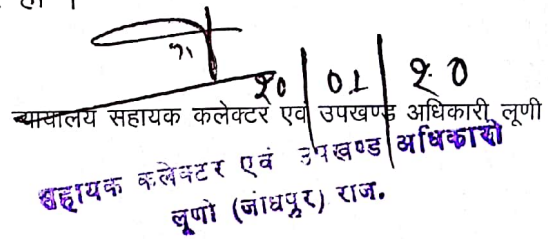 २० | 01 | २०
न्यायालय सहायक कलेक्टर एवं उपखण्ड अधिकारी, लूणी
सहायक कलेक्टर एवं उपखण्ड अधिकारी
लूणी (जोधपुर) राज.